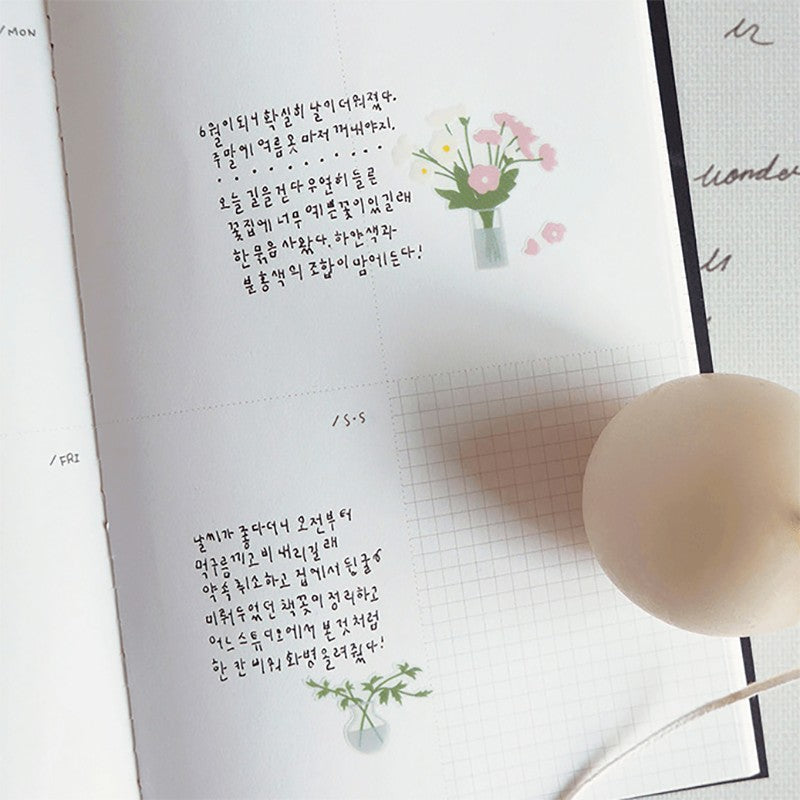 /MON
6월이 되니 확실히 날이 더워졌다.
주말에 여름옷 마저 꺼내야지.
. . . . . . . . . . .
오늘 길을 걷다 우연히 들른
꽃집에 너무 예쁜 꽃이 있길래
한 묶음 사왔다. 하얀색과
분홍색의 조합이 맘에 든다!
/S·S
/FRI
날씨가 좋다더니 오전부터
먹구름 끼고 비 내리길래
약속 취소하고 집에서 뒹굴
미뤄두었던 책꽂이 정리하고
어느 스튜디오에서 본 것처럼
한 칸 비워 화병 올려줬다!
wonder